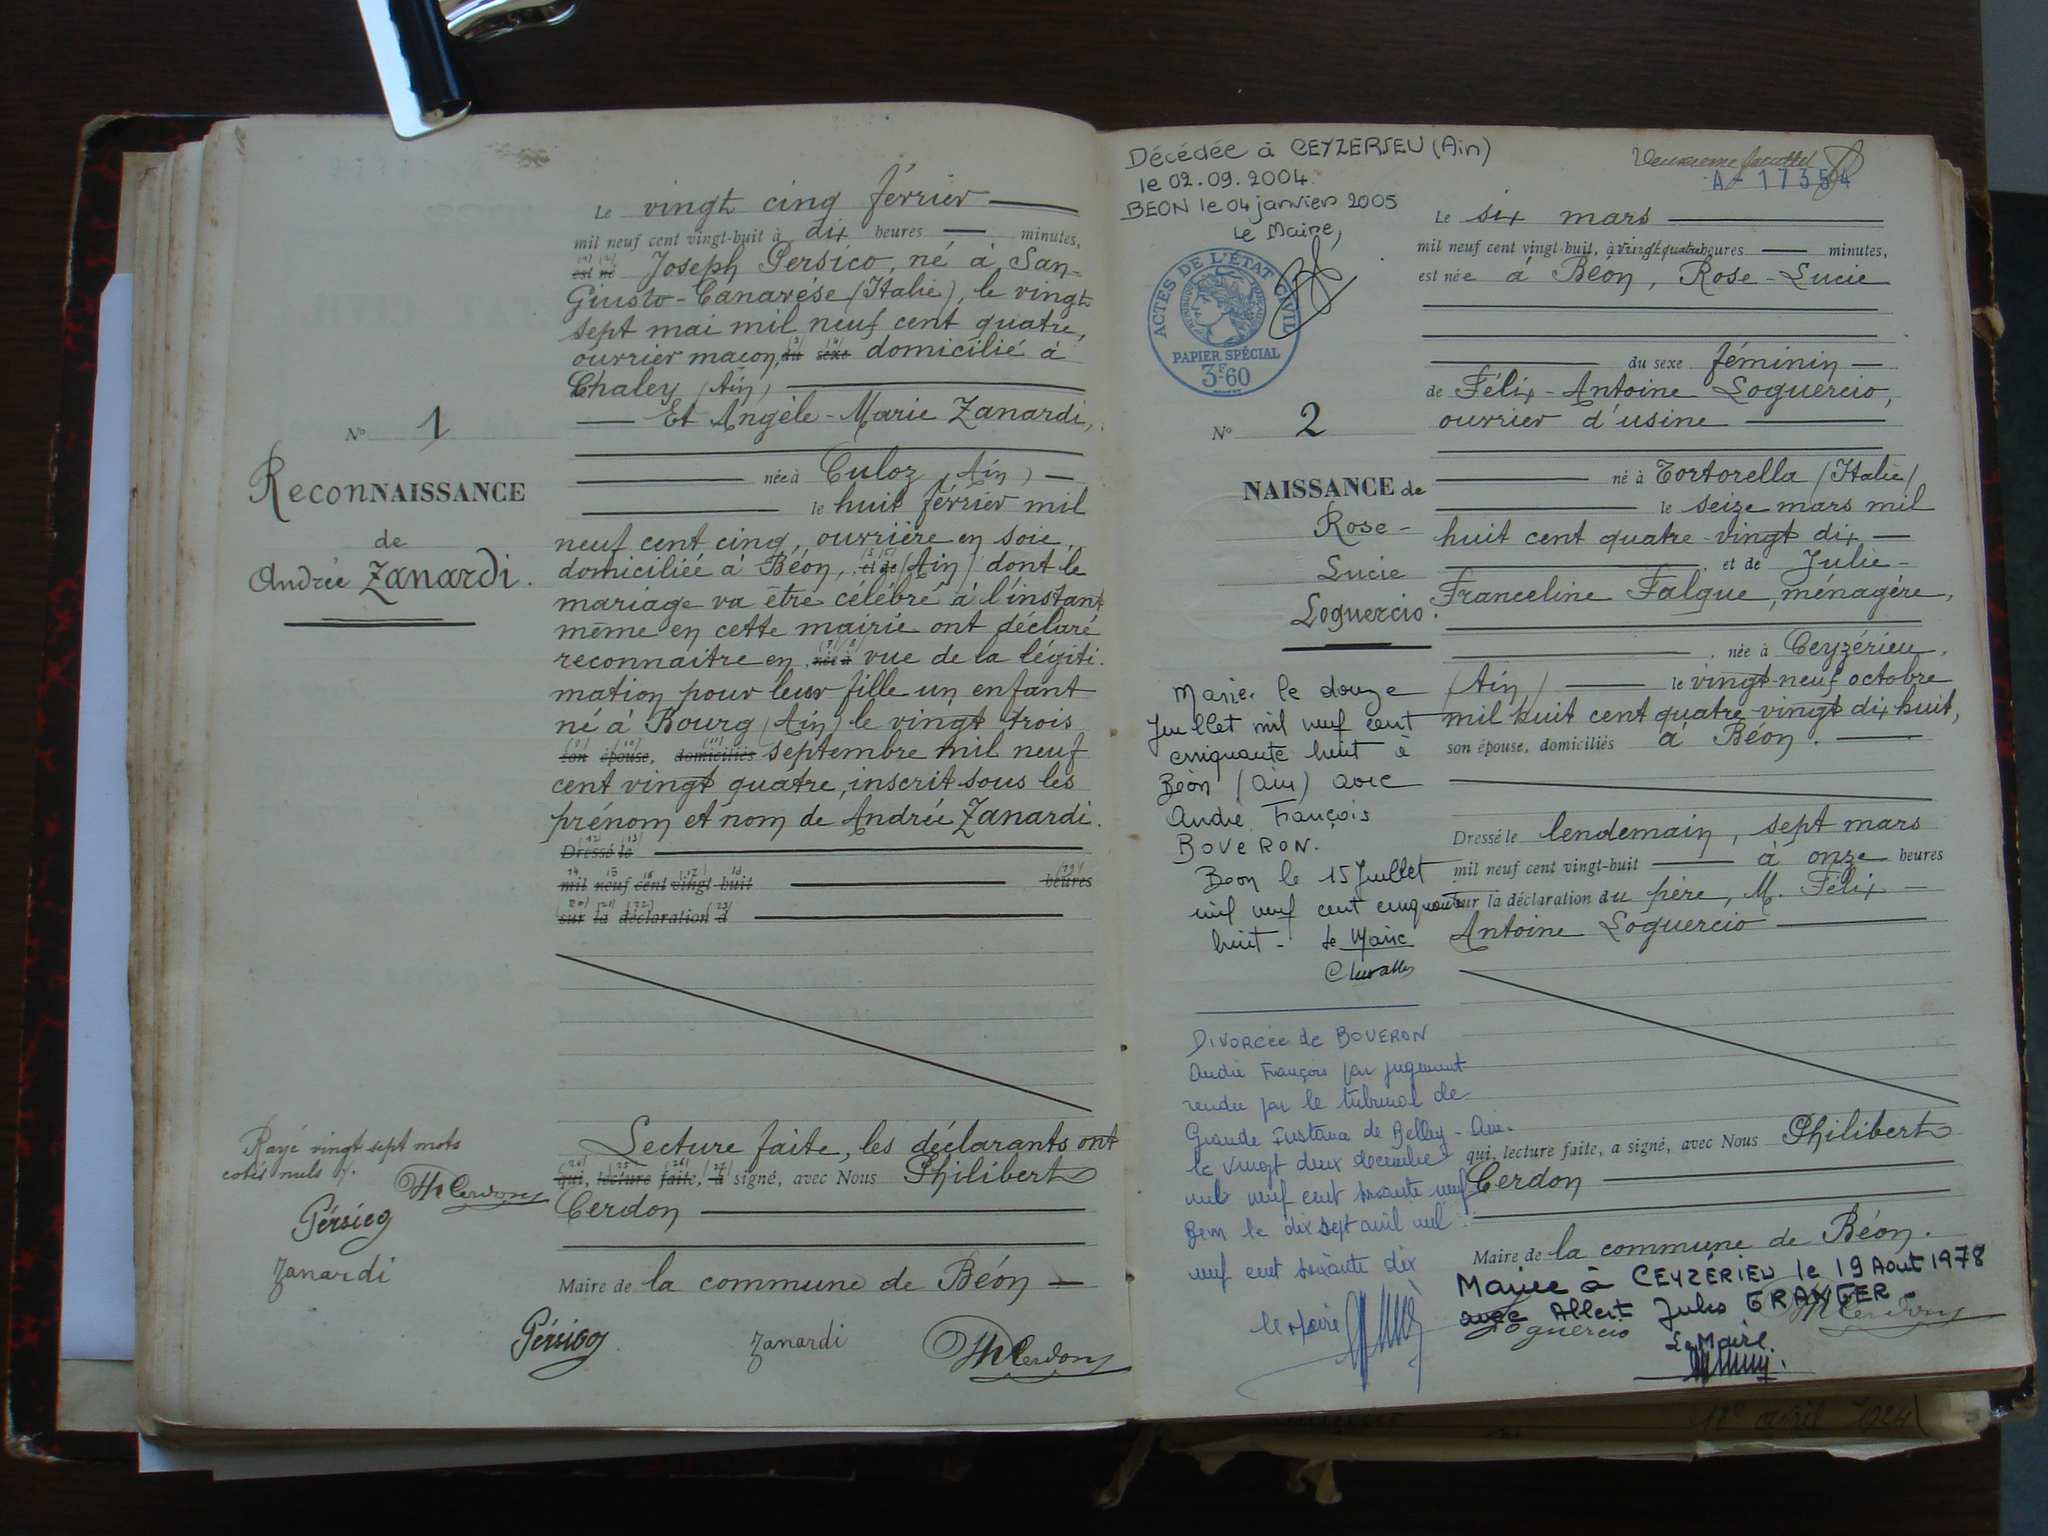 Le vingt cinq février
mil neuf cent vingt-huit à dix heures — minutes,
est né Joseph Persico, né à San-
Giusto-Canavèse (Italie), le vingt
sept mai mil neuf cent quatre,
ouvrier maçon, du sexe domicilié à
Chaley (Ain)
Et Angèle-Marie Zanardi,
née à Culoz (Ain)
le huit février mil
neuf cent cinq, ouvrière en soie,
domiciliée à Béon, et de (Ain) dont le
mariage va être célébré à l'instant
même en cette mairie ont déclaré
reconnaitre en née à vue de la légiti-
mation pour leur fille un enfant
né à Bourg (Ain) le vingt trois
son épouse, domiciliés septembre mil neuf
cent vingt quatre, inscrit sous les
prénom et nom de Andrée Zanardi.
Dressé le
mil neuf cent vingt-huit heures
sur la déclaration d
Lecture faite, les déclarants ont
qui, lecture faite, a signé, avec Nous Philibert
Cerdon
Maire de la commune de Béon
Pérsico Zanardi Ph Cerdon
N° 1
ReconNAISSANCE
de
Andrée Zanardi.
Rayé vingt sept mots
cotés nuls
Ph Cerdon
Pérsico
Zanardi
Décédée à CEYZERIEU (Ain)
le 02.09.2004
BEON le 04 janvier 2005
Le Maire,
ACTES DE L'ÉTAT CIVIL
PAPIER SPÉCIAL
3F60
A - 17354
N° 2
NAISSANCE de
Rose-
Lucie
Loguercio.
Mariée le douze
Juillet mil neuf cent
cinquante huit à
Béon (Ain) avec
André François
BOVERON.
Béon le 15 Juillet
mil neuf cent cinquante
huit - Le Maire
DIVORCÉE de BOVERON
André François par jugement
rendu par le tribunal de
Grande Instance de Belley - Ain.
le vingt deux décembre
mil neuf cent soixante neuf
Béon le dix sept avril mil
neuf cent soixante dix
le Maire
Le six mars
mil neuf cent vingt-huit, à vingt quatre heures — minutes,
est née à Béon, Rose-Lucie
du sexe féminin
de Félix-Antoine Loguercio,
ouvrier d'usine
né à Tortorella (Italie)
le seize mars mil
huit cent quatre-vingt dix
et de Julie-
Franceline Falque, ménagère,
née à Ceyzérieu,
(Ain) le vingt-neuf octobre
mil huit cent quatre-vingt dix huit,
son épouse, domiciliés à Béon.
Dressé le lendemain, sept mars
mil neuf cent vingt-huit à onze heures
sur la déclaration du père, M. Félix
Antoine Loguercio
qui, lecture faite, a signé, avec Nous Philibert
Cerdon
Maire de la commune de Béon.
Mariée à CEYZÉRIEU le 19 Aout 1978
avec Albert Jules GRANGER.
Loguercio Ph Cerdon
Le Maire.
avril 1924